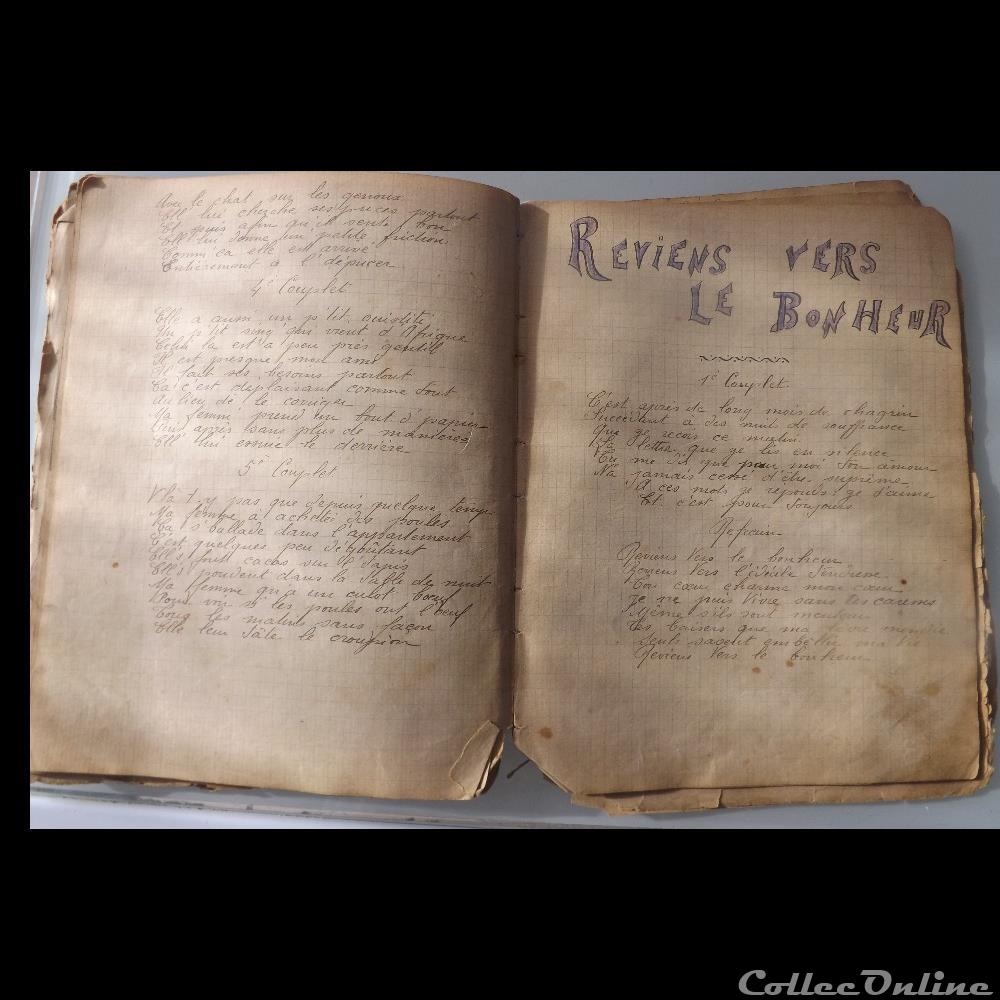 Avec le chat sur les genoux
Ell' lui cherche ses puces partout
Et puis afin qu'il sente bon
Ell' lui donne un' petite friction
Comm' ça elle est arrivé
Entièrement à l'épucer
4e Couplet
Elle a aussi un p'tit ouistiti
Un p'tit sing' qui vient d'Afrique
Celui la est a peu près gentil
Il est presque mon ami
Il fait ses besoins partout
Ça c'est déplaisant comme tout
Au lieu de le corriger
Ma femme prend un bout d'papier
Puis après sans plus de manières
Ell' lui essuie le derrière
5e Couplet
V'la t'y pas que depuis quelque temps
Ma femme a acheté des poules
Ça s'ballade dans l'appartement
C'est quelques peu dégoûtant
Ell's font cacas sur l'tapis
Ell's pondent dans la table de nuit
Ma femme qu'a un culot boeuf
Pour voir si les poules ont l'oeuf
Tous les matins sans façon
Elle leur tâte le croupion
REVIENS VERS
LE BONHEUR
1e Couplet
C'est après de long mois de chagrin
Succédant a des nuit de souffrance
Que je reçois ce matin
La lettre que je lis en silence
Tu me dis que pour moi ton amour
N'a jamais cessé d'être suprême
A ces mots je réponds je t'aime
Et c'est pour toujours
Refrain
Reviens vers le bonheur
Reviens vers l'idéale tendresse
Ton coeur charme mon coeur
Je ne puis vivre sans tes caresses
Même s'ils sont menteurs
Tes baisers que ma lèvre
Seuls savent embellir ma vie
Reviens vers le bonheur
CollecOnline